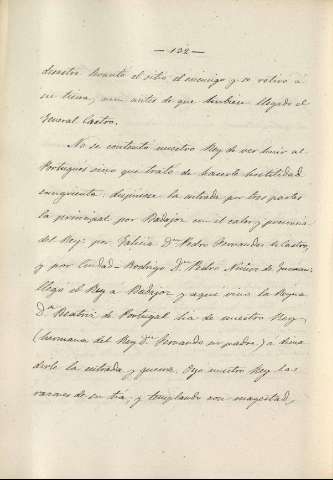 — 132 —
desastre levantó el sitio el enemigo y se retiró á
su tierra, aun antes de que hubiese llegado el
General Castro.
No se contenta nuestro Rey de ver huir al
Portugués sino que trata de hacerle hostilidad
sangrienta: dispusose la entrada por tres partes
la principal por Badajoz con el calor y presencia
del Rey: por Galicia Dn Pedro Fernandez de Castro,
y por Ciudad-Rodrigo Dn Pedro Núñez de Guzman:
llegó el Rey a Badajoz y aquí vino la Reyna
Dª Beatriz de Portugal tia de nuestro Rey
(hermana del Rey Dn Fernando su padre) a
derle la entrada y guerra. Oyó nuestro Rey las
razones de su tía, y templando con magestad,